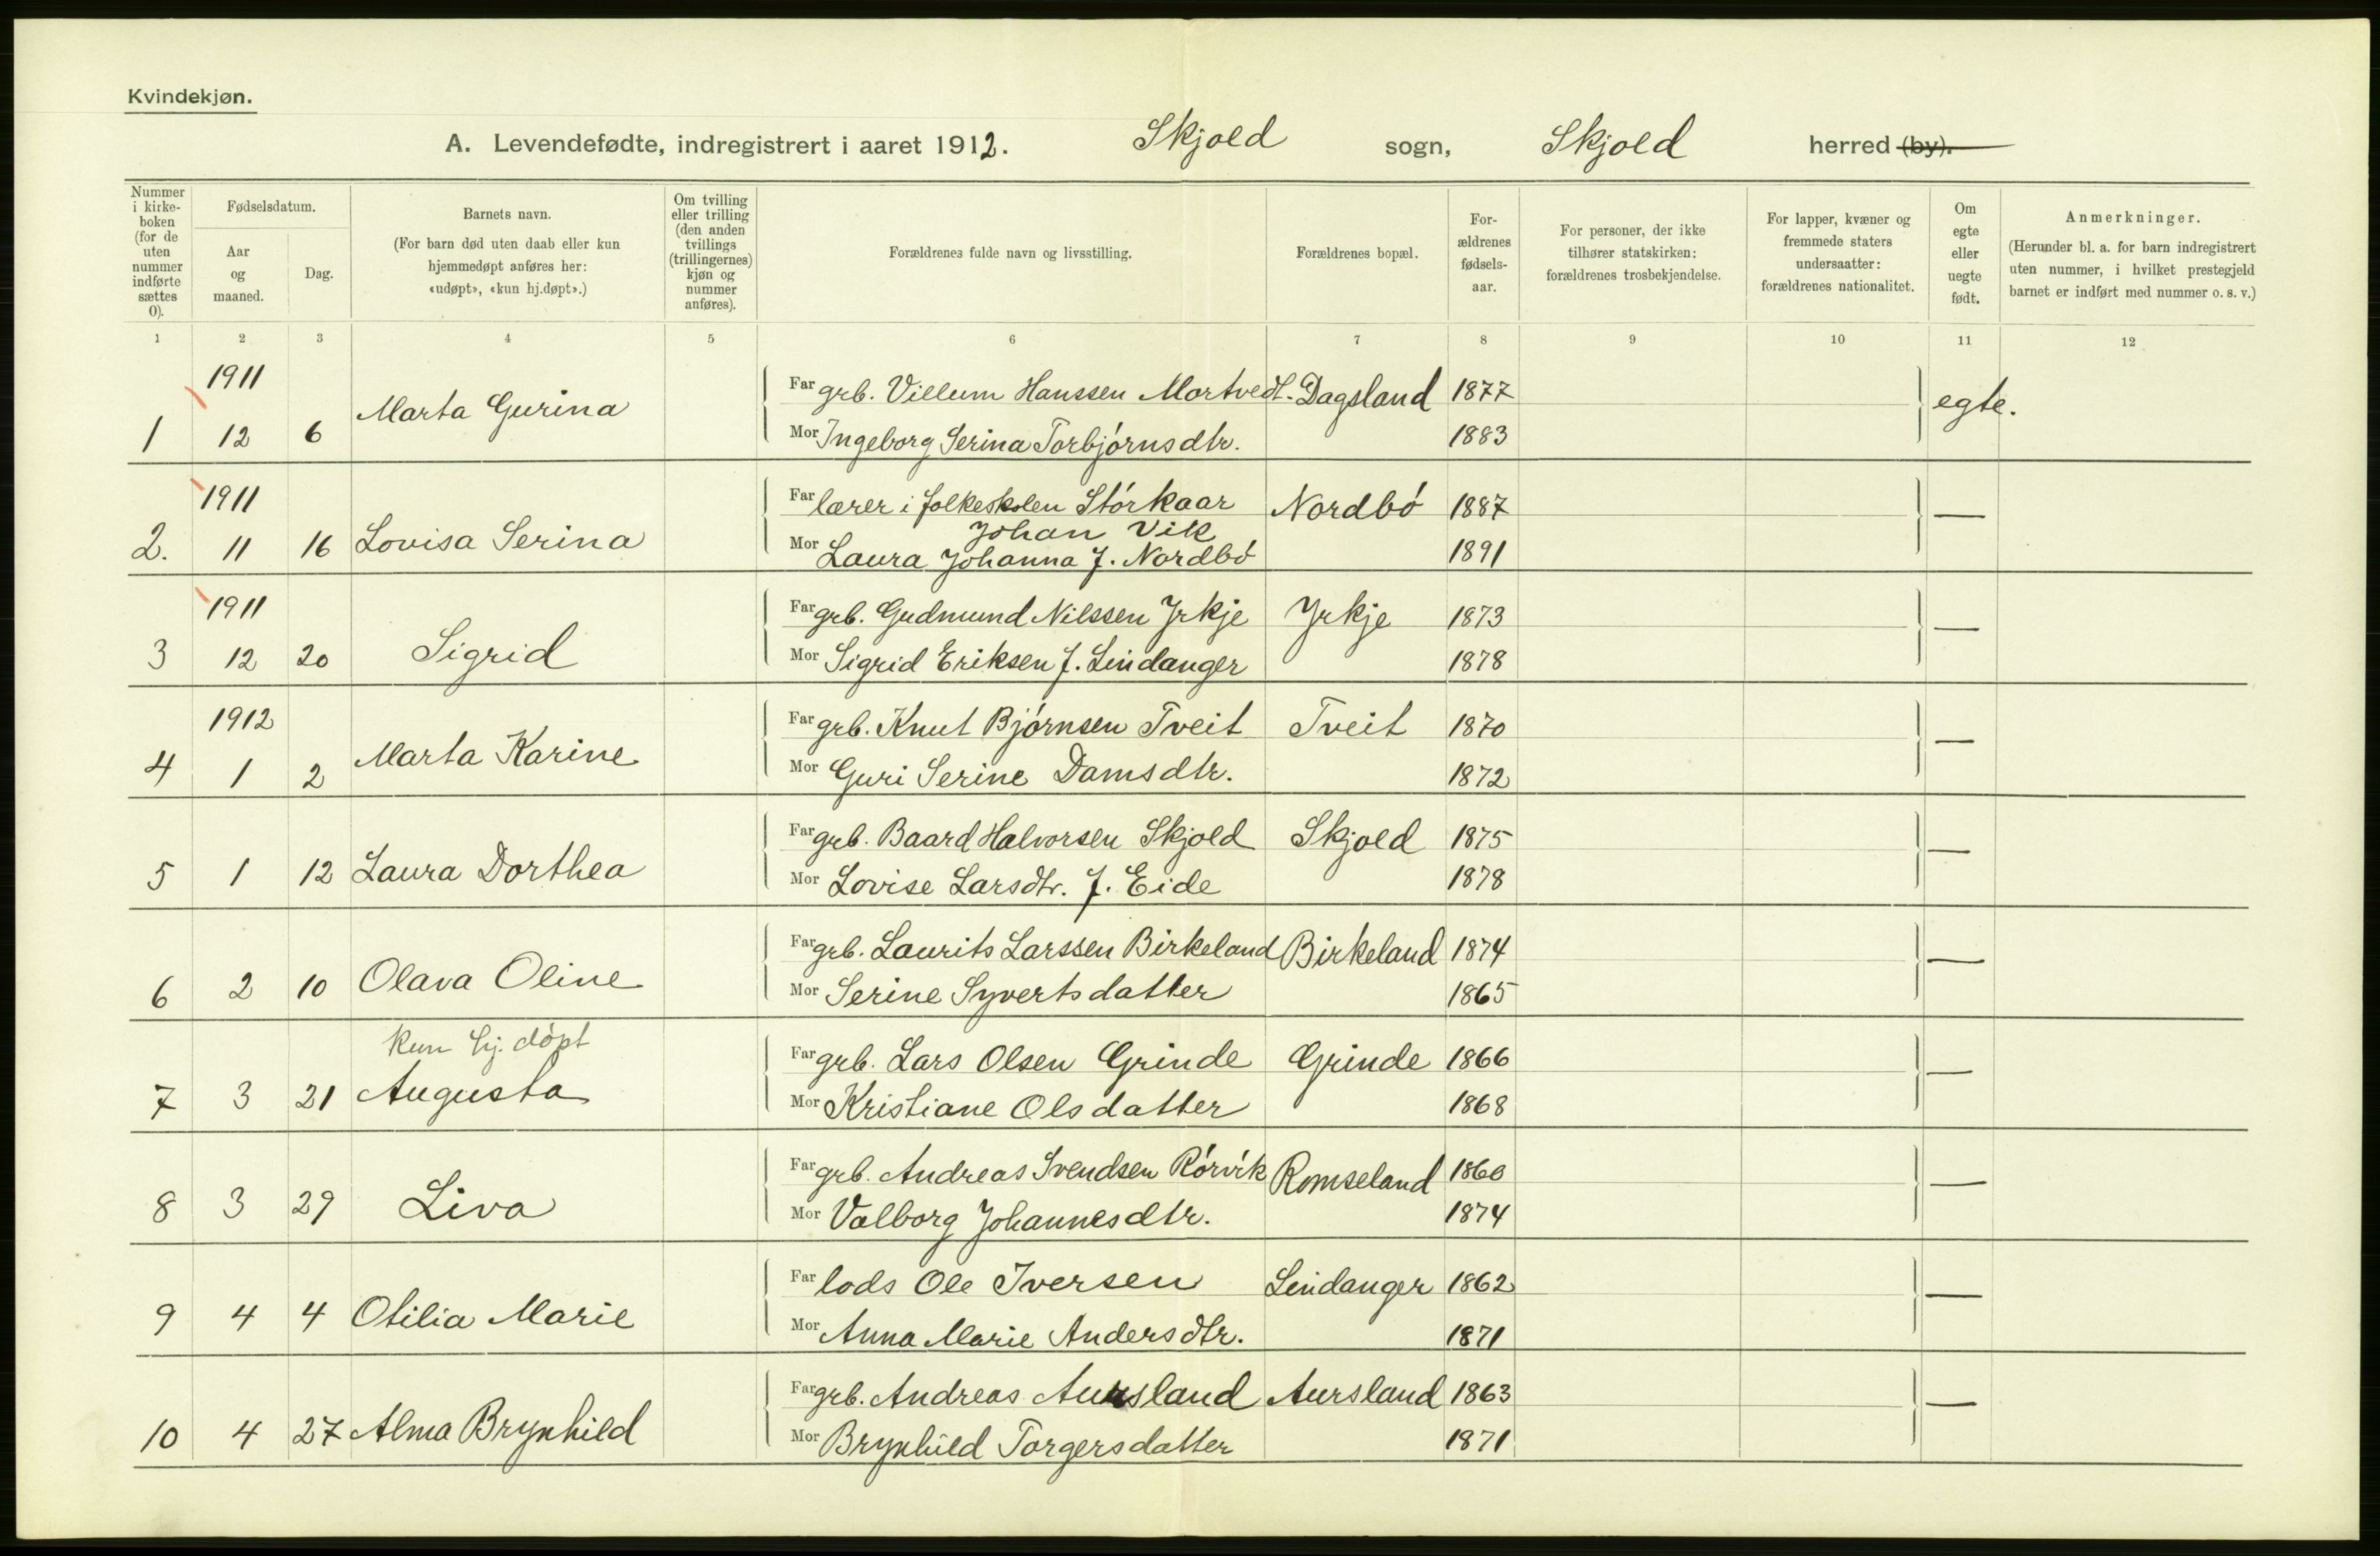 Kvindekjøn.
A. Levendefødte, indregistrert i aaret 1912. Skjold sogn, Skjold herred (by).
Nummer i kirke-boken (for de uten nummer indførte sættes 0).
Fødselsdatum.
Aar og maaned.
Dag.
Barnets navn.
(For barn død uten daab eller kun hjemmedøpt anføres her: «udøpt», «kun hj.døpt».)
Om tvilling eller trilling (den anden tvillings (trillingernes) kjøn og nummer anføres).
Forældrenes fulde navn og livsstilling.
Forældrenes bopæl.
For-ældrenes fødsels-aar.
For personer, der ikke tilhører statskirken: forældrenes trosbekjendelse.
For lapper, kvæner og fremmede staters undersaatter: forældrenes nationalitet.
Om egte eller uegte født.
Anmerkninger.
(Herunder bl. a. for barn indregistrert uten nummer, i hvilket prestegjeld barnet er indført med nummer o. s. v.)
1 2 3 4 5 6 7 8 9 10 11 12
1911 Far grb. Villum Hanssen Mortvedt. Dagsland 1877 egte.
1 12 6 Marta Gurina Mor Ingeborg Serina Torbjórnsdtr. 1883
1911 Far lærer i folkeskolen Stórkaar Nordbó 1887 —
Johan Vik
2. 11 16 Lovisa Serina Mor Laura Johanna f. Nordbó 1891
1911 Far grb. Gudmund Nilssen Yrkje Yrkje 1873 —
3 12 20 Sigrid Mor Sigrid Eriksen f. Lindanger 1878
1912 Far grb. Knut Bjórnsen Tveit Tveit 1870 —
4 1 2 Marta Karine Mor Guri Serine Damsdtr. 1872
Far grb. Baard Halvorsen Skjold Skjold 1875 —
5 1 12 Laura Dorthea Mor Lovise Larsdtr. f. Eide 1878
Far grb. Laurits Larssen Birkeland Birkeland 1874 —
6 2 10 Olava Oline Mor Serine Syvertsdatter 1865
kun hj. dópt Far grb. Lars Olsen Grinde Grinde 1866 —
7 3 21 Augusta Mor Kristiane Olsdatter 1868
Far grb. Andreas Svendsen Rórvik Romseland 1860 —
8 3 29 Liva Mor Valborg Johannesdtr. 1874
Far lods Ole Iversen Lindanger 1862 —
9 4 4 Otilia Marie Mor Anna Marie Andersdtr. 1871
Far grb. Andreas Aursland Aursland 1863 —
10 4 27 Alma Brynhild Mor Brynhild Torgersdatter 1871